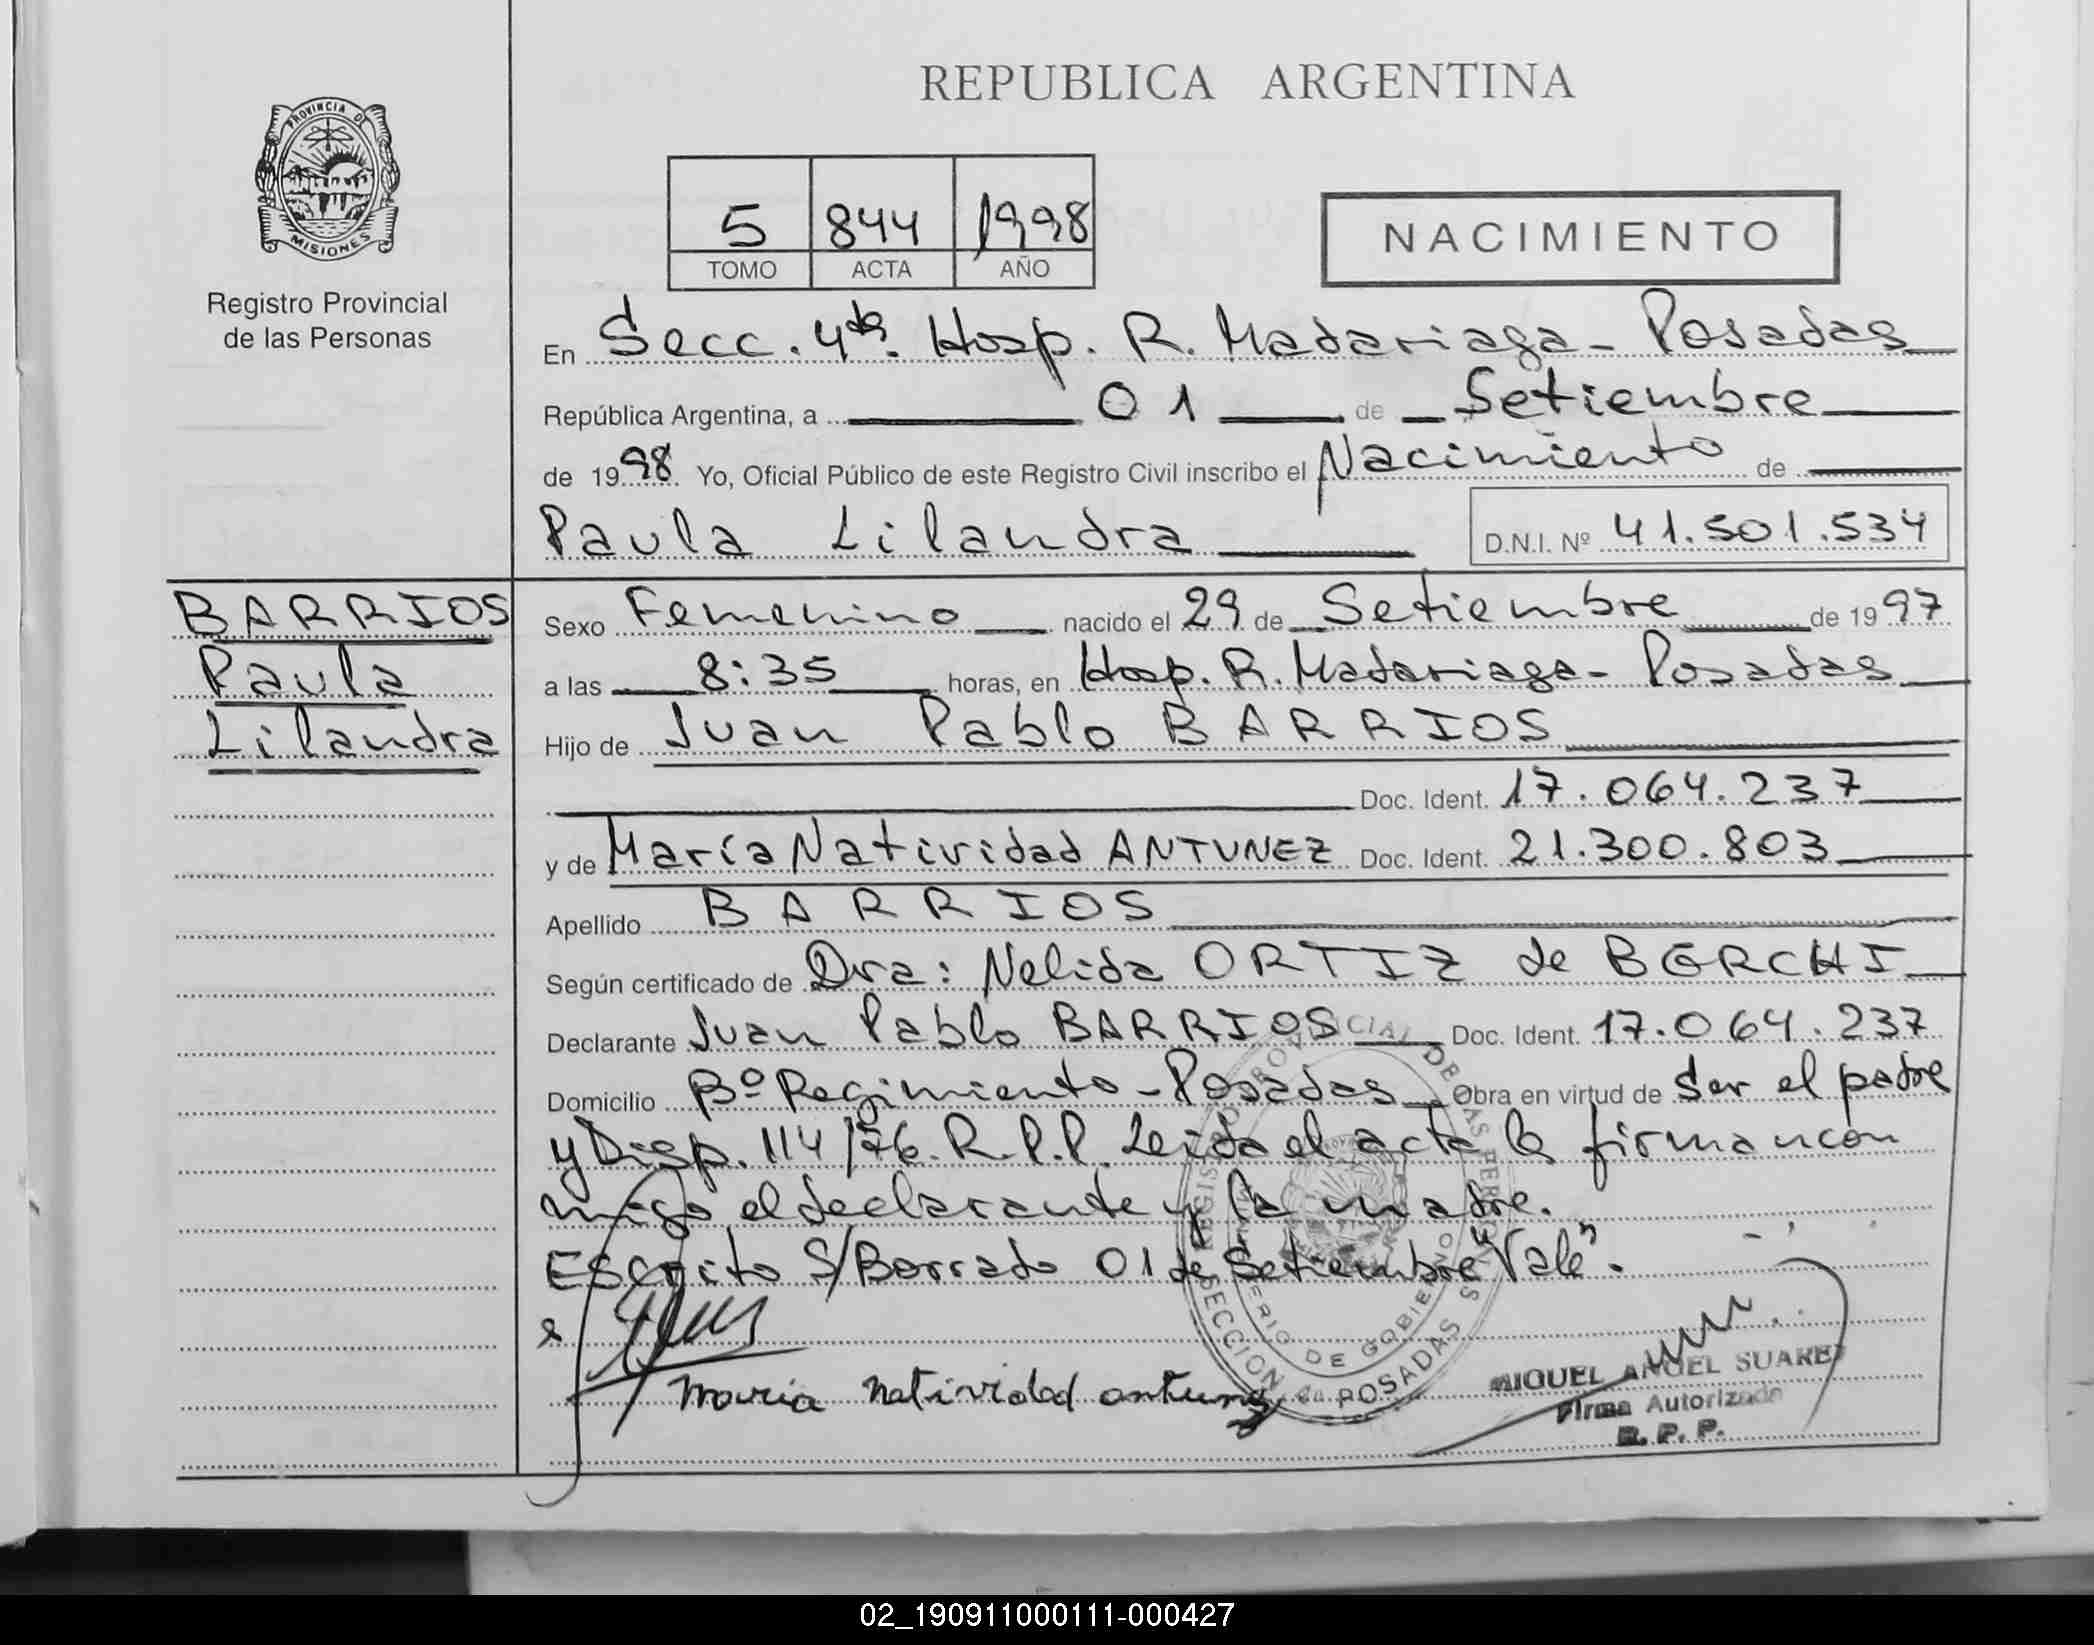 REPUBLICA ARGENTINA
PROVINCIA DE
MISIONES
Registro Provincial
de las Personas
5 844 1998
TOMO ACTA AÑO
NACIMIENTO
En Secc. 4ta. Hosp. R. Madariaga - Posadas
República Argentina, a 01 de Setiembre
de 1998. Yo, Oficial Público de este Registro Civil inscribo el Nacimiento de
Paula Lilandra D.N.I. Nº 41.501.534
BARRIOS
Paula
Lilandra
Sexo Femenino nacido el 29 de Setiembre de 1997
a las 8:35 horas, en Hosp. R. Madariaga - Posadas
Hijo de Juan Pablo BARRIOS
Doc. Ident. 17.064.237
y de María Natividad ANTUNEZ Doc. Ident. 21.300.803
Apellido BARRIOS
Según certificado de Dra: Nelida ORTIZ de BERCHI
Declarante Juan Pablo BARRIOS Doc. Ident. 17.064.237
Domicilio Bº Regimiento - Posadas Obra en virtud de Ser el padre
y Disp. 114/76. R.P.P. Leida el acta la firman con
migo el declarante y la madre.
Escrito S/Borrado 01 de Setiembre "Vale".
maria natividad antunez
MIGUEL ANGEL SUAREZ
Firma Autorizada
R. P. P.
REGISTRO PROVINCIAL DE LAS PERSONAS
MINISTERIO DE GOBIERNO
SECCION 4a. POSADAS
02_190911000111-000427